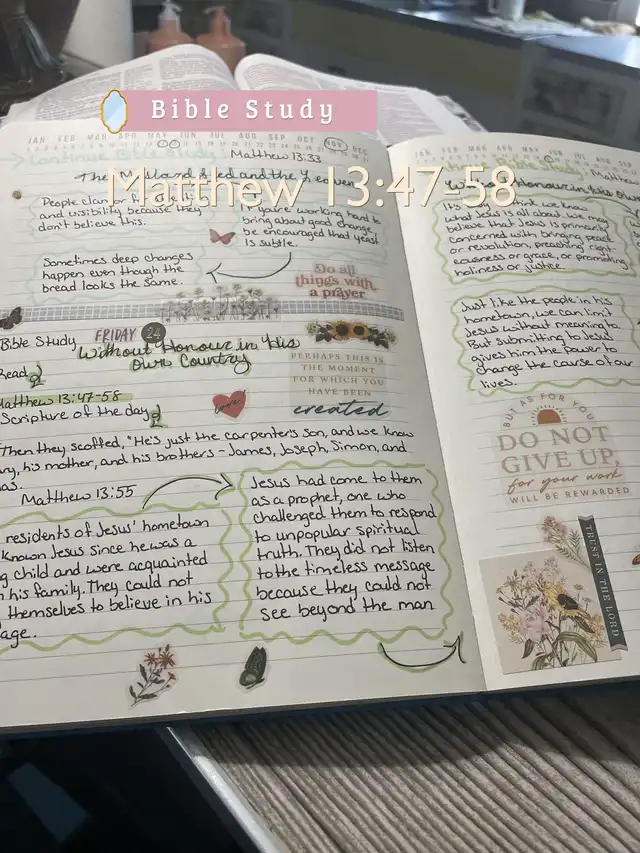 Bible Study
Matthew 13:47-58
JAN FEB MAR APR MAY JUN JUL AUG SEP OCT NOV DEC
→ Continue Bible Study
Matthew 13:33
The Mustard Seed and the Leaven
and visibility because they
don't believe this.
If you're working hard to
bring about good change,
be encouraged that yeast
is subtle.
Sometimes deep changes
happen even though the
bread looks the same.
Do all
things with
a prayer
Bible Study
FRIDAY 24
Without Honour in His
Own Country
Read
Matthew 13:47-58
Scripture of the day
PERHAPS THIS IS
THE MOMENT
FOR WHICH YOU
HAVE BEEN
created
Then they scoffed, "He's just the carpenter's son, and we know
his mother, and his brothers - James, Joseph, Simon, and
Matthew 13:55
residents of Jesus' hometown
known Jesus since he was a
child and were acquainted
his family. They could not
themselves to believe in his
Jesus had come to them
as a prophet, one who
challenged them to respond
to unpopular spiritual
truth. They did not listen
to the timeless message
because they could not
see beyond the man
JAN FEB MAR APR MAY JUN JUL AUG SEP
Bible Study
Honour in His Own
think we know
what Jesus is all about. We may
believe that Jesus is primarily
concerned with bringing peace
or revolution, preaching
or grace, or promoting
holiness or justice.
Just like the people in his
hometown, we can limit
Jesus without meaning to.
But submitting to Jesus
gives him the power to
change the course of our
lives.
BUT AS FOR YOU
DO NOT
GIVE UP,
for your work
WILL BE REWARDED
TRUST IN THE LORD